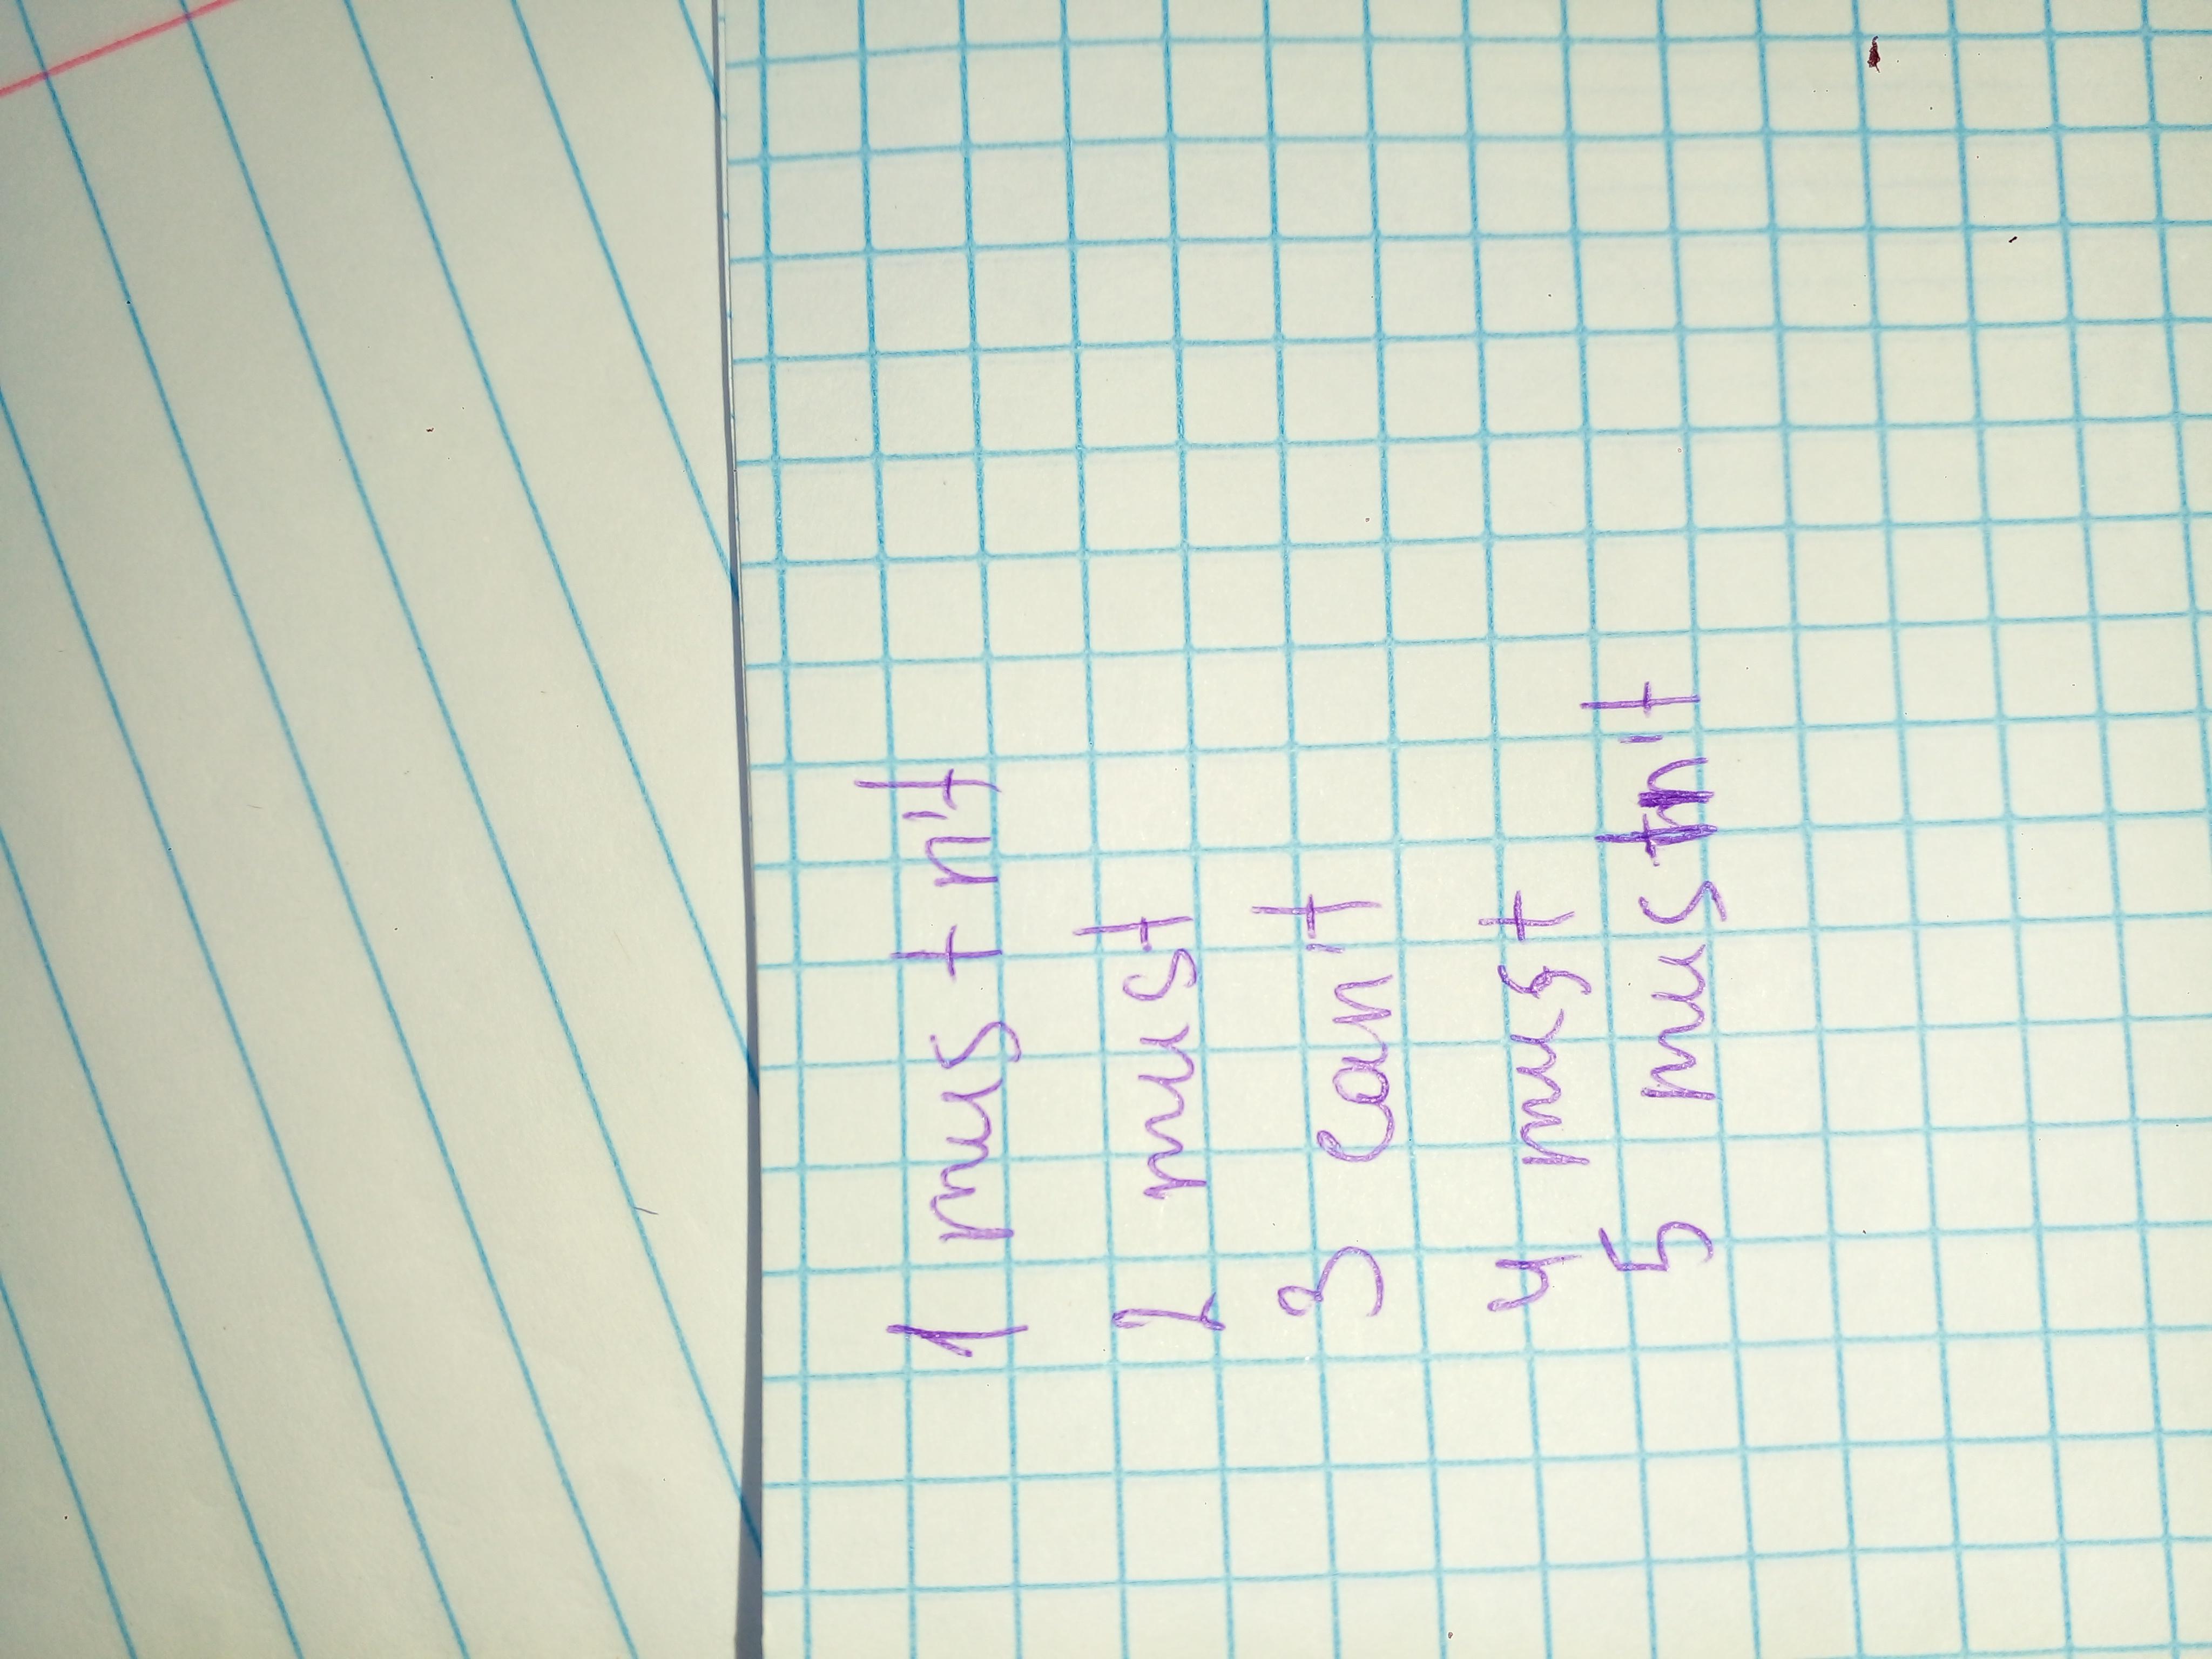 1 mustn't
2 must
3 can't
4 must
5 mustn't